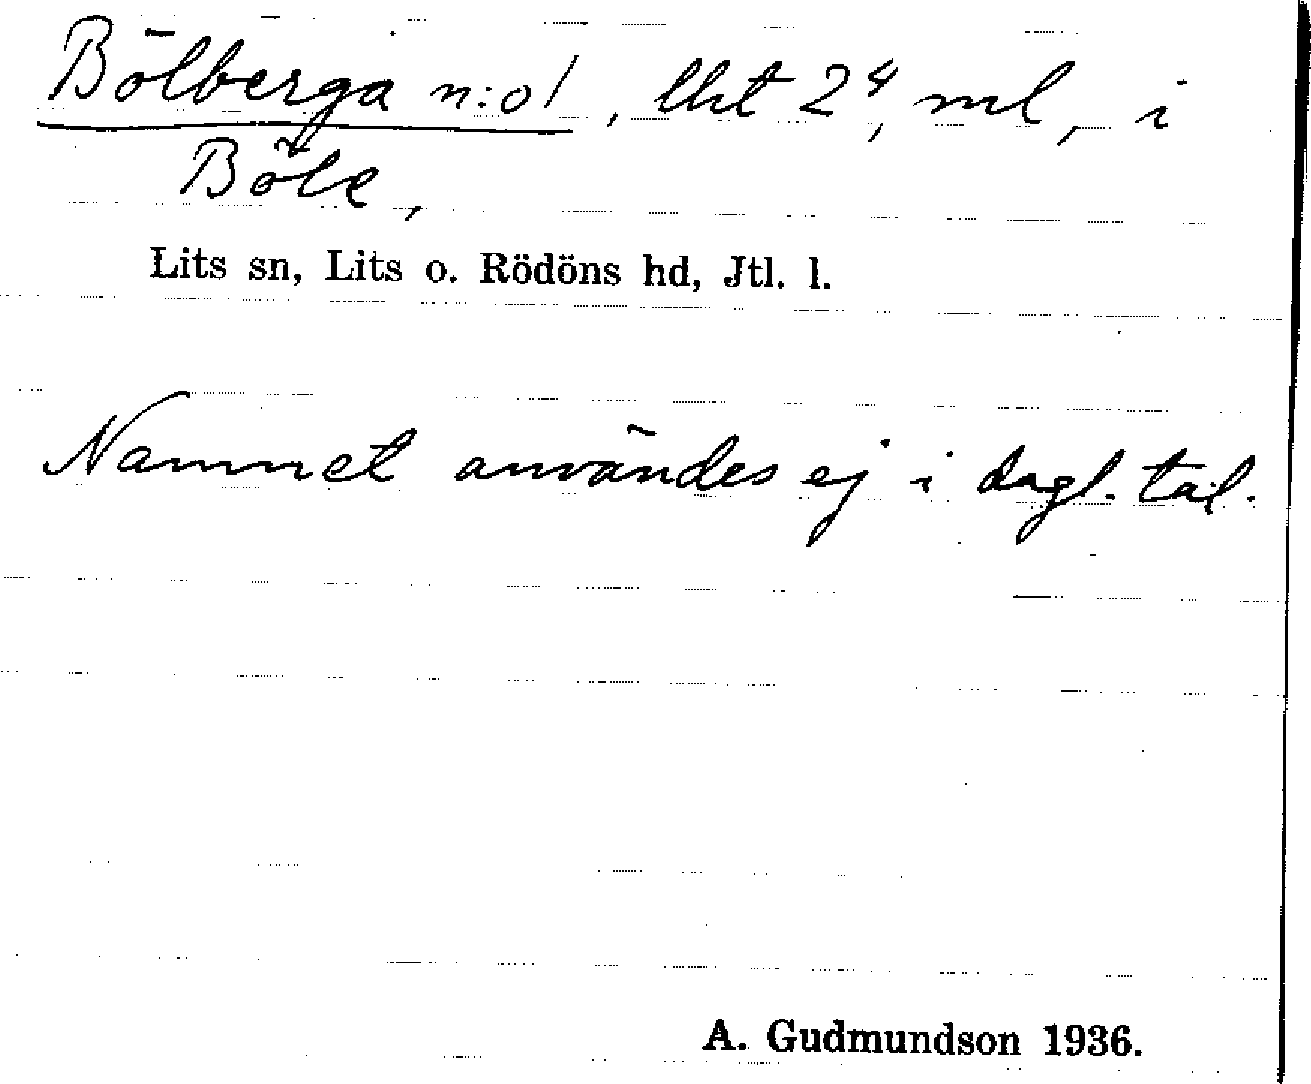 Bölberga n:o 1, lht 2⁴, ml, i
Böle,
Lits sn, Lits o. Rödöns hd, Jtl. l.
Namnet användes ej i dagl. tal.
A. Gudmundson 1936.